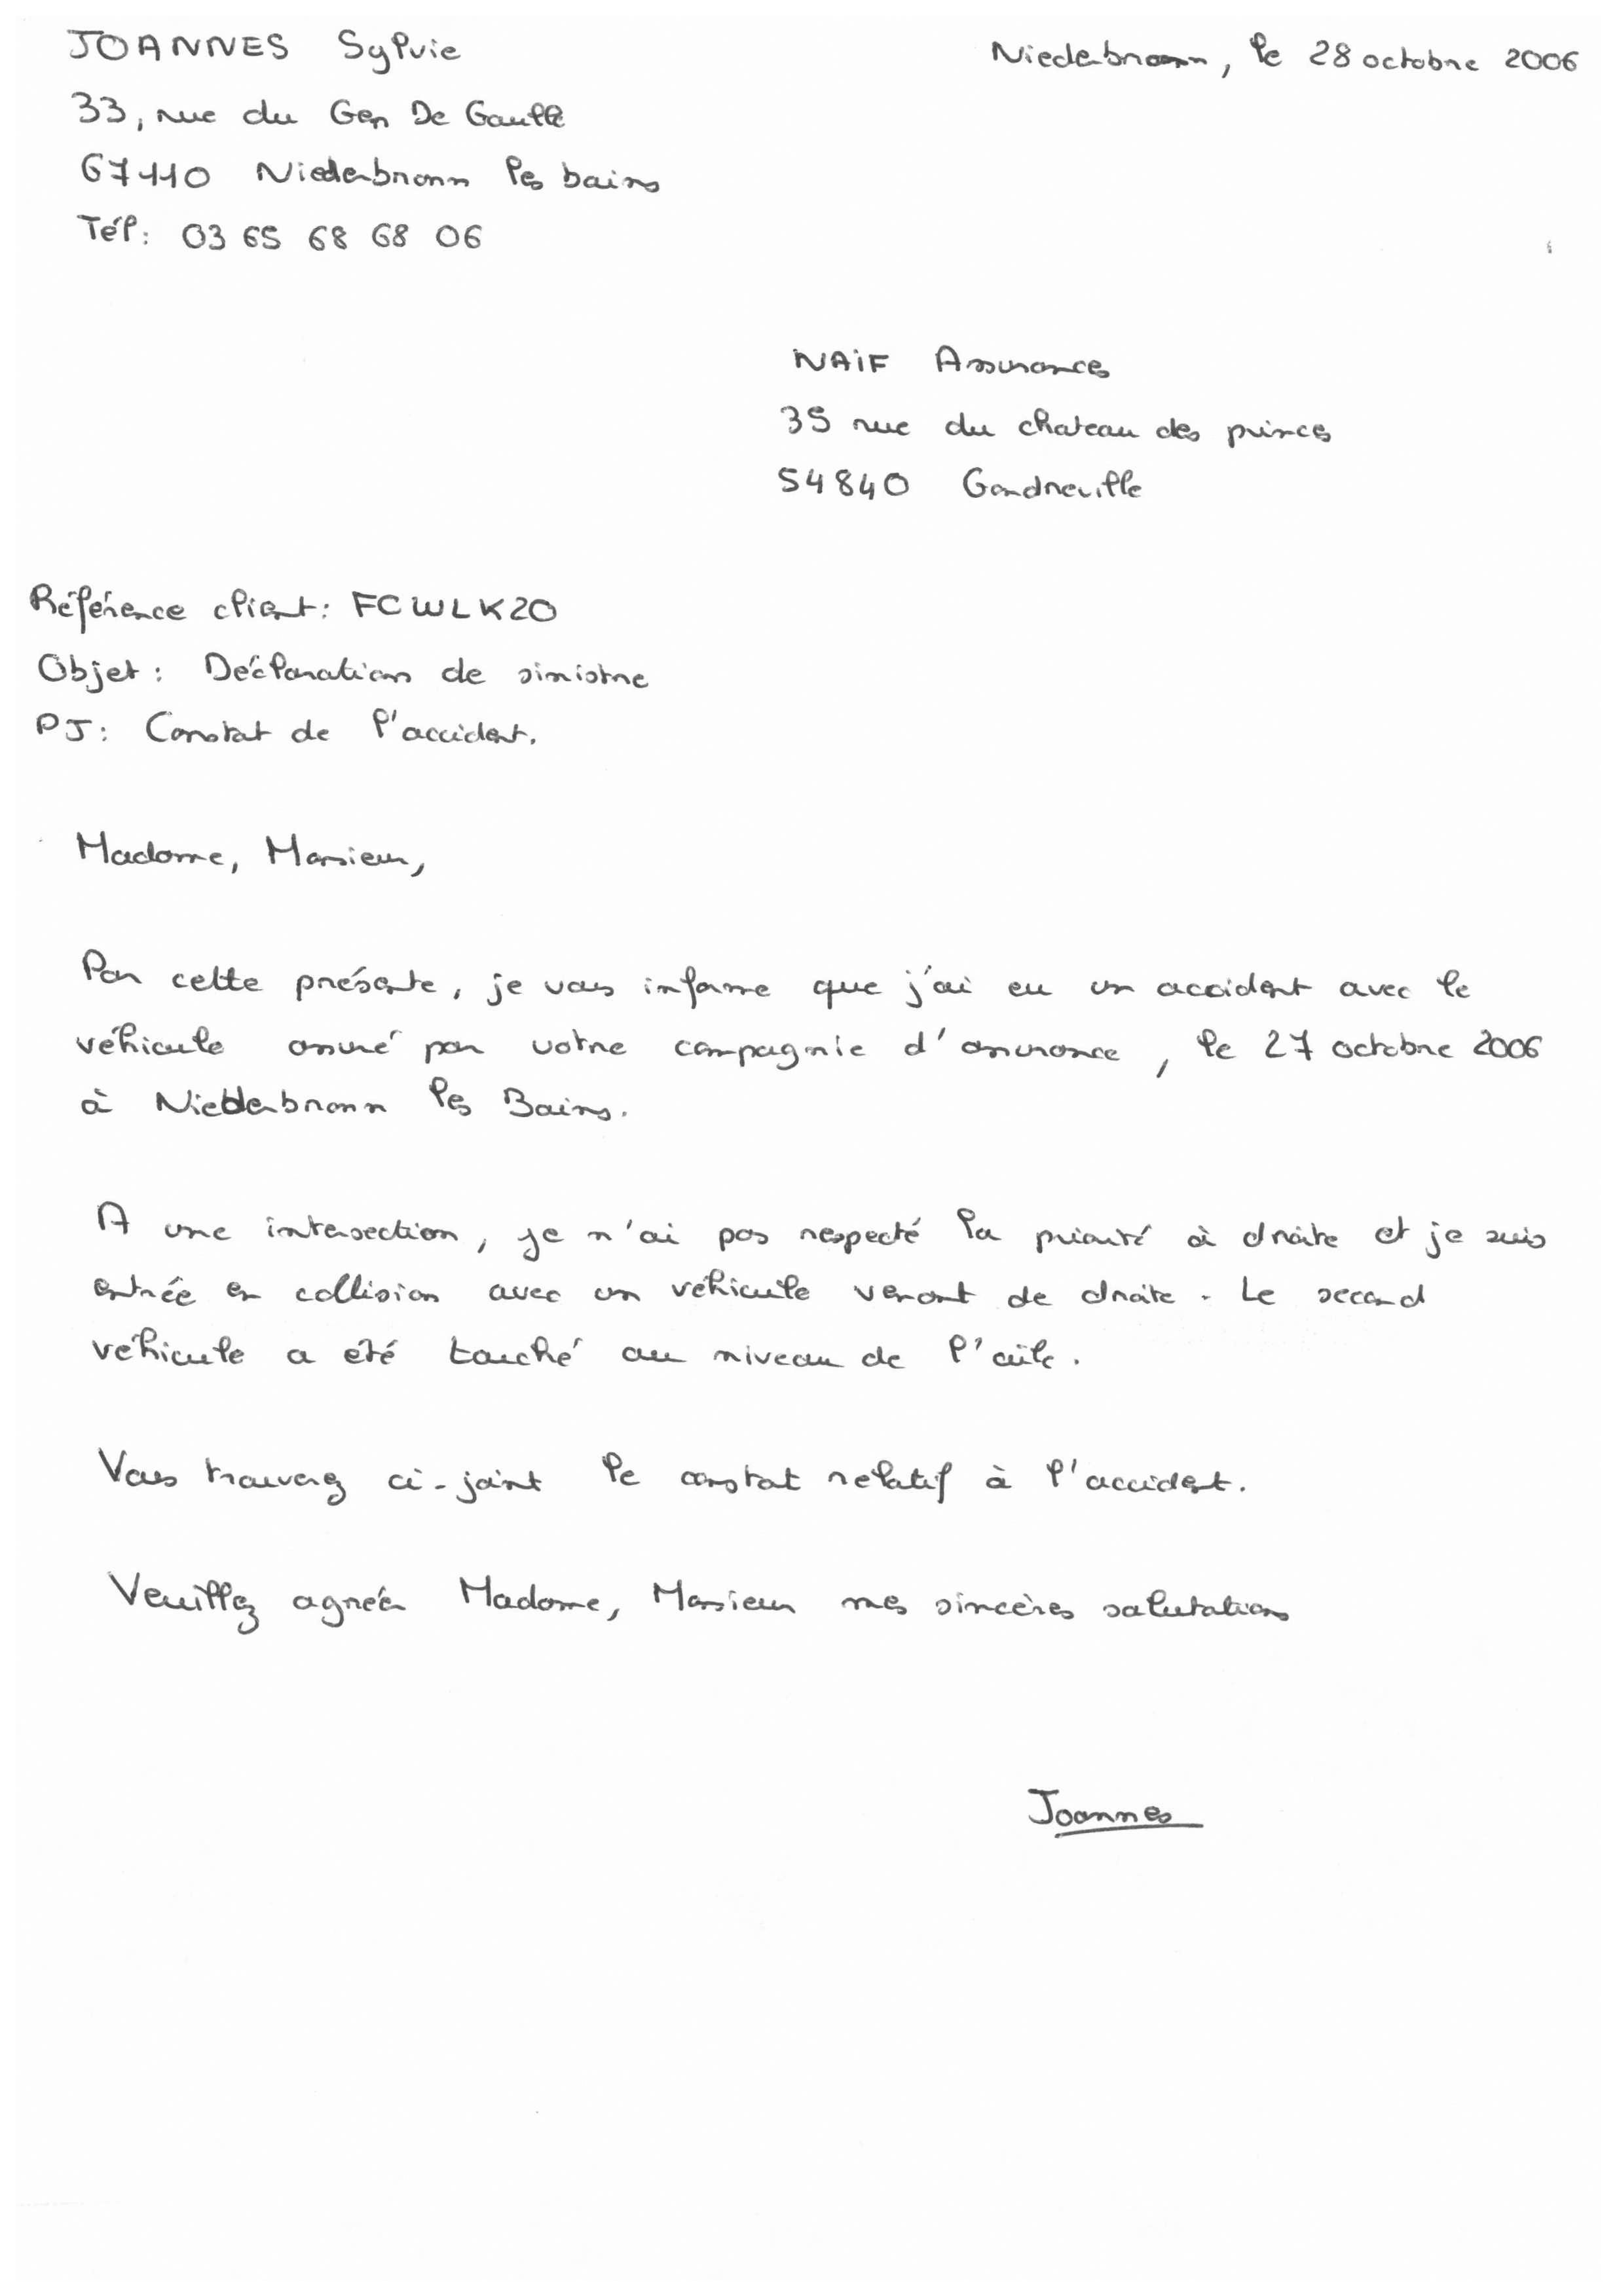 JOANNES Sylvie
Niederbronn, le 28 octobre 2006
33, rue du Gen De Gaulle
67110 Niederbronn les bains
Tél: 03 65 68 68 06
NAIF Assurances
35 rue du chateau des princes
54840 Gondreville
Référence client: FCWLK20
Objet: Déclaration de sinistre
PJ: Constat de l'accident.
Madame, Monsieur,
Par cette présente, je vous informe que j'ai eu un accident avec le
véhicule assuré par votre compagnie d'assurance, le 27 octobre 2006
à Niederbronn les Bains.
A une intersection, je n'ai pas respecté la priorité à droite et je suis
entrée en collision avec un véhicule venant de droite. Le second
véhicule a été touché au niveau de l'aile.
Vous trouverez ci-joint le constat relatif à l'accident.
Veuillez agréer Madame, Monsieur mes sincères salutations
Joannes